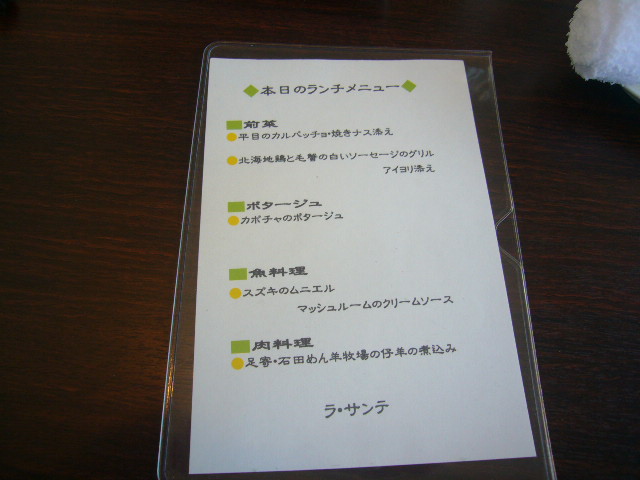 ◆本日のランチメニュー◆
■前菜
●平目のカルパッチョ・焼きナス添え
●北海地鶏と毛蟹の白いソーセージのグリル
アイヨリ添え
■ポタージュ
●カボチャのポタージュ
■魚料理
●スズキのムニエル
マッシュルームのクリームソース
■肉料理
●足寄・石田めん羊牧場の仔羊の煮込み
ラ・サンテ